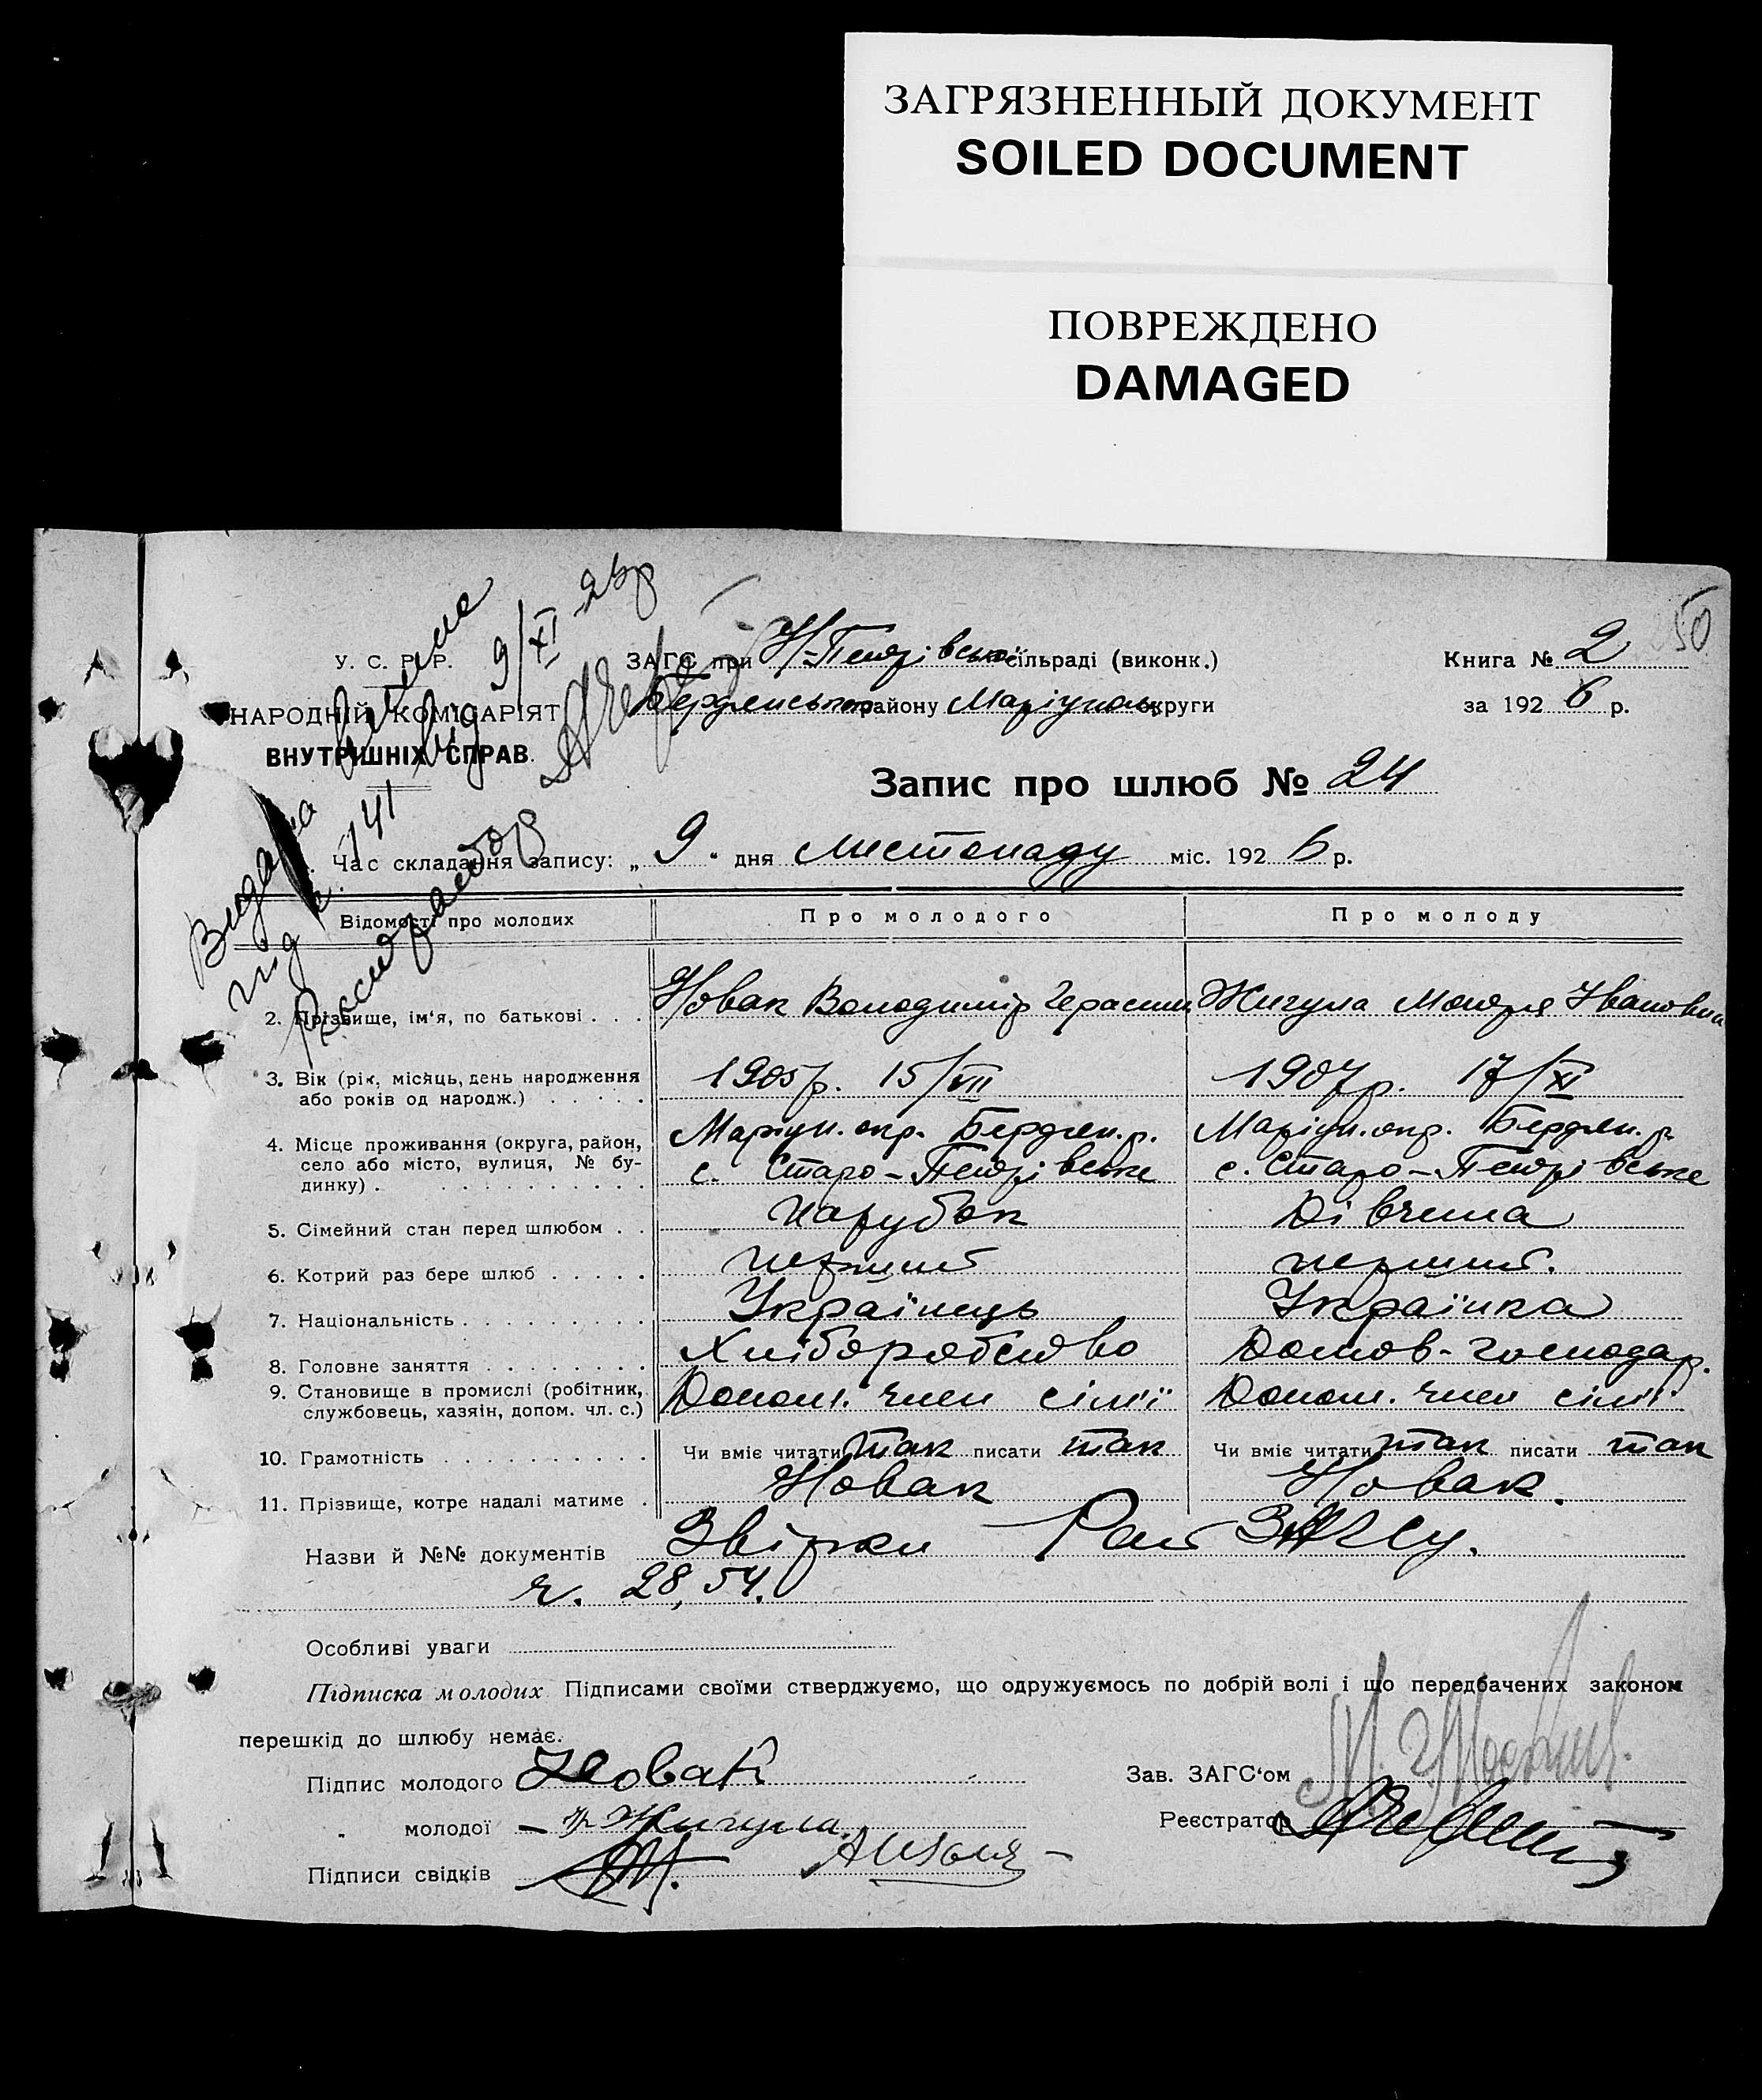 ЗАГРЯЗНЕННЫЙ ДОКУМЕНТ
SOILED DOCUMENT
ПОВРЕЖДЕНО
DAMAGED
50
У. С. Р. Р.
НАРОДНІЙ КОМІСАРІЯТ
ВНУТРІШНІХ СПРАВ.
Видана
під ч. 141
від 9/XI - 26р
ЗАГС при Н-Петрівській сільраді (виконк.)
Бердянського району Маріупольс округи
Книга № 2
за 192 6 р.
Запис про шлюб № 24
Час складання запису: „ 9. дня листопаду міс. 192 6 р.
Відомості про молодих Про молодого Про молоду
2. Прізвище, ім'я, по батькові . . . Новак Володимір Герасим Жигула Мотря Івановна
3. Вік (рік, місяць, день народження або років од народж.) . . . . . 1905р. 15/VII 1907р. 17/XI
4. Місце проживання (округа, район, село або місто, вулиця, № будинку) . Маріуп. окр. Бердян. р. с. Старо-Петрівське Маріуп. окр. Бердян. р. с. Старо-Петрівське
5. Сімейний стан перед шлюбом . . Парубок Дівчина
6. Котрий раз бере шлюб . . . . . перший перший.
7. Національність . . . . . . . . . Українець Українка
8. Головне заняття . . . . . . . . Хліборобство Домов-господар.
9. Становище в промислі (робітник, службовець, хазяін, допом. чл. с.) Допом. член сім'ї Допом. член сім'ї
10. Грамотність . . . . . . . . . . Чи вміє читати так писати так Чи вміє читати так писати так
11. Прізвище, котре надалі матиме . Новак Новак.
Назви й №№ документів Звірки Рай ЗАГСу.
ч. 28, 54.
Особливі уваги
Підписка молодих Підписами своїми стверджуємо, що одружуємось по добрій волі і що передбачених законом
перешкід до шлюбу немає.
Підпис молодого Новак
Зав. ЗАГС'ом
„ молодої Жигула
Реєстратор
Підписи свідків